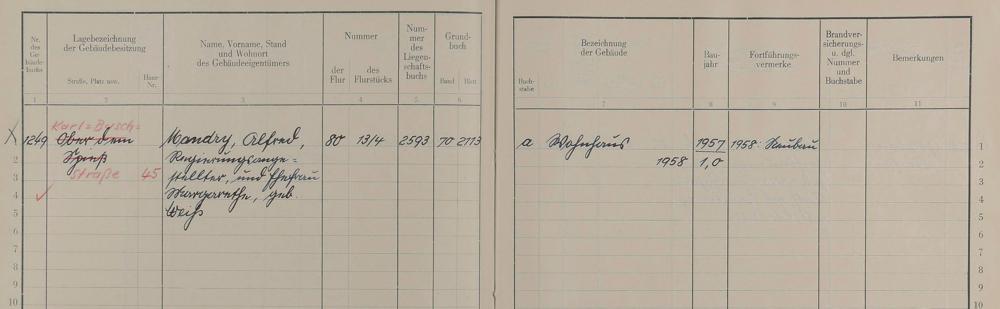 Nr. des Gebäudebuchs
Lagebezeichnung der Gebäudebesitzung
Straße, Platz usw.
Haus-Nr.
Name, Vorname, Stand
und Wohnort
des Gebäudeeigentümers
Nummer
der Flur
des Flurstücks
Nummer des Liegenschaftsbuchs
Grundbuch
Band
Blatt
1 2 3 4 5 6
Karl=Busch=
X 1249 Ober dem Mandry, Alfred, 80 13/4 2593 70 2113
2 Spieß Regierungsange=
3 straße 45 stellter, und Ehefrau
4 Margarethe, geb.
5 Weiß
6
7
8
9
10
Buchstabe
Bezeichnung
der Gebäude
Baujahr
Fortführungsvermerke
Brandversicherungs- u. dgl. Nummer und Buchstabe
Bemerkungen
7 8 9 10 11
a Wohnhaus 1957 1958 Neubau 1
1958 1,0 2
3
4
5
6
7
8
9
10